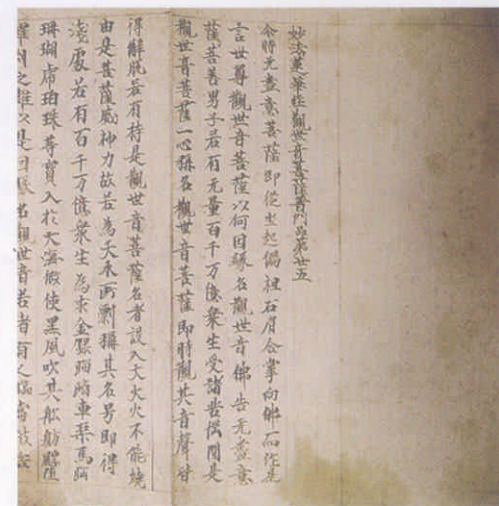 妙法蓮華経觀世音菩薩普門品第廿五
尒時无盡意菩薩即從坐起偏袒右肩合掌向佛而作是
言世尊觀世音菩薩以何因緣名觀世音佛告无盡意
菩薩善男子若有无量百千万億衆生受諸苦惱聞是
觀世音菩薩一心稱名觀世音菩薩即時觀其音聲皆
得解脱若有持是觀世音菩薩名者設入大火火不能燒
由是菩薩威神力故若為大水所漂稱其名号即得
淺處若有百千万億衆生為求金銀琉璃車渠馬瑙
珊瑚虎珀珠等寶入於大海假使黒風吹其舩舫飄墮
羅刹之難以是因緣名觀世音若